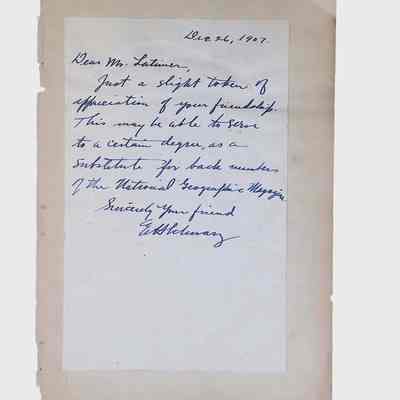 Dec 26, 1907.
Dear Mr. Latimer,
Just a slight token of
appreciation of your friendship.
This may be able to serve
to a certain degree, as a
substitute for back numbers
of the National Geographic Magazine
Sincerely Your friend